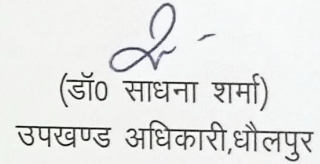 (डॉ0 साधना शर्मा)
उपखण्ड अधिकारी,धौलपुर